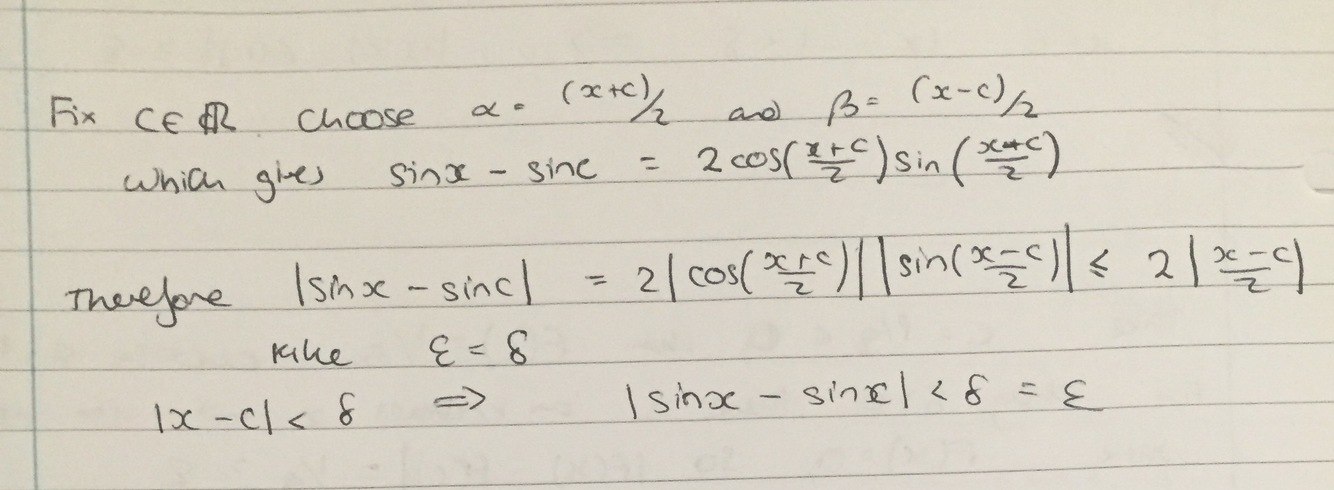 Fix C∈ℝ. Choose α = (x+c)/2 and β = (x-c)/2
which gives sinx - sinc = 2cos((x+c)/2)sin((x+c)/2)
Therefore |sinx - sinc| = 2|cos((x+c)/2)||sin((x-c)/2)| ≤ 2|(x-c)/2|
take ε = δ
|x-c| < δ ⇒ |sinx - sinx| < δ = ε